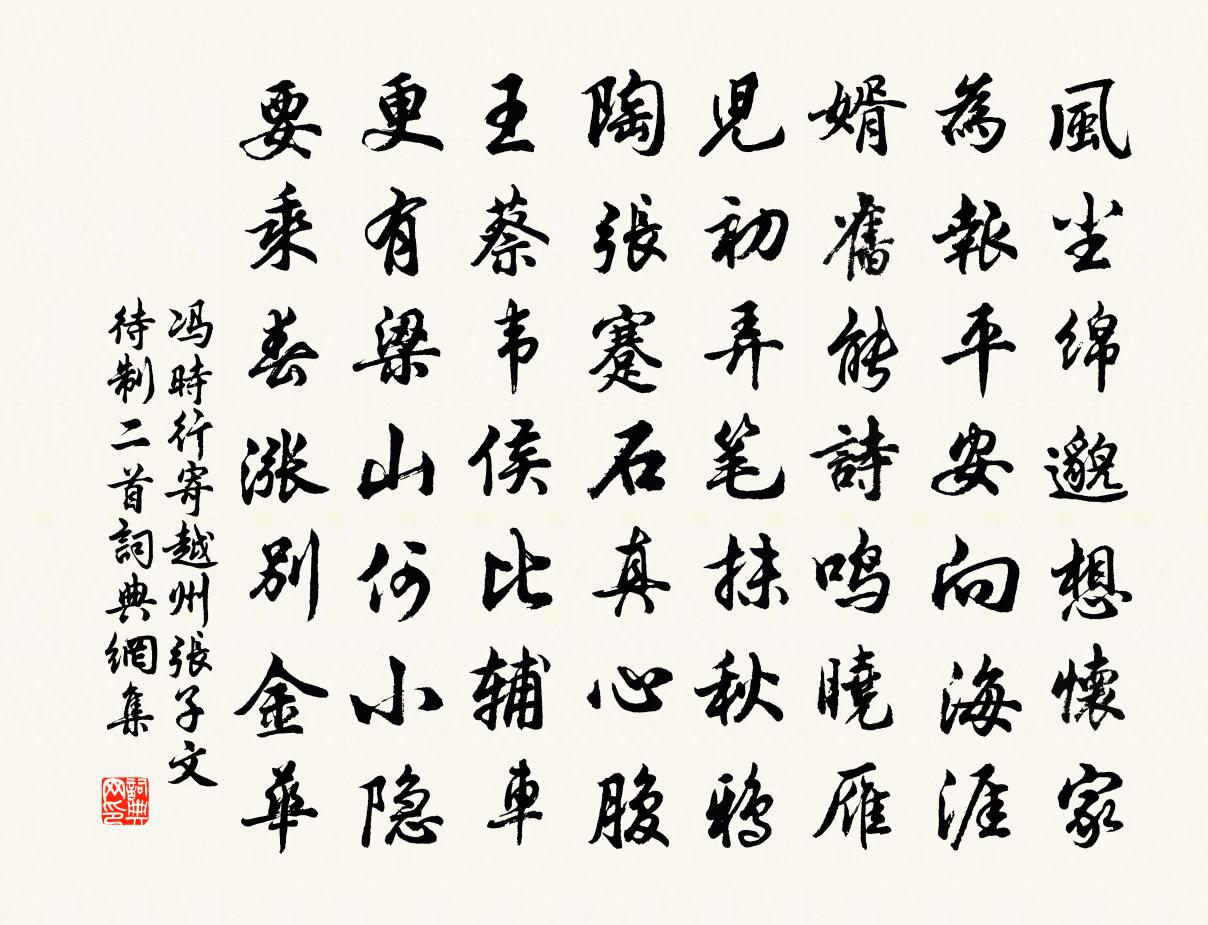 風尘绵邈想懷家
為報平安向海涯
婿舊能詩鸣曉雁
児初弄笔抹秋鸦
陶張蹇石真心腹
王蔡韦侯比辅車
更有梁山何小隐
要乘春漲别金華
冯時行寄越州張子文
待制二首詞典網集
詞典网印